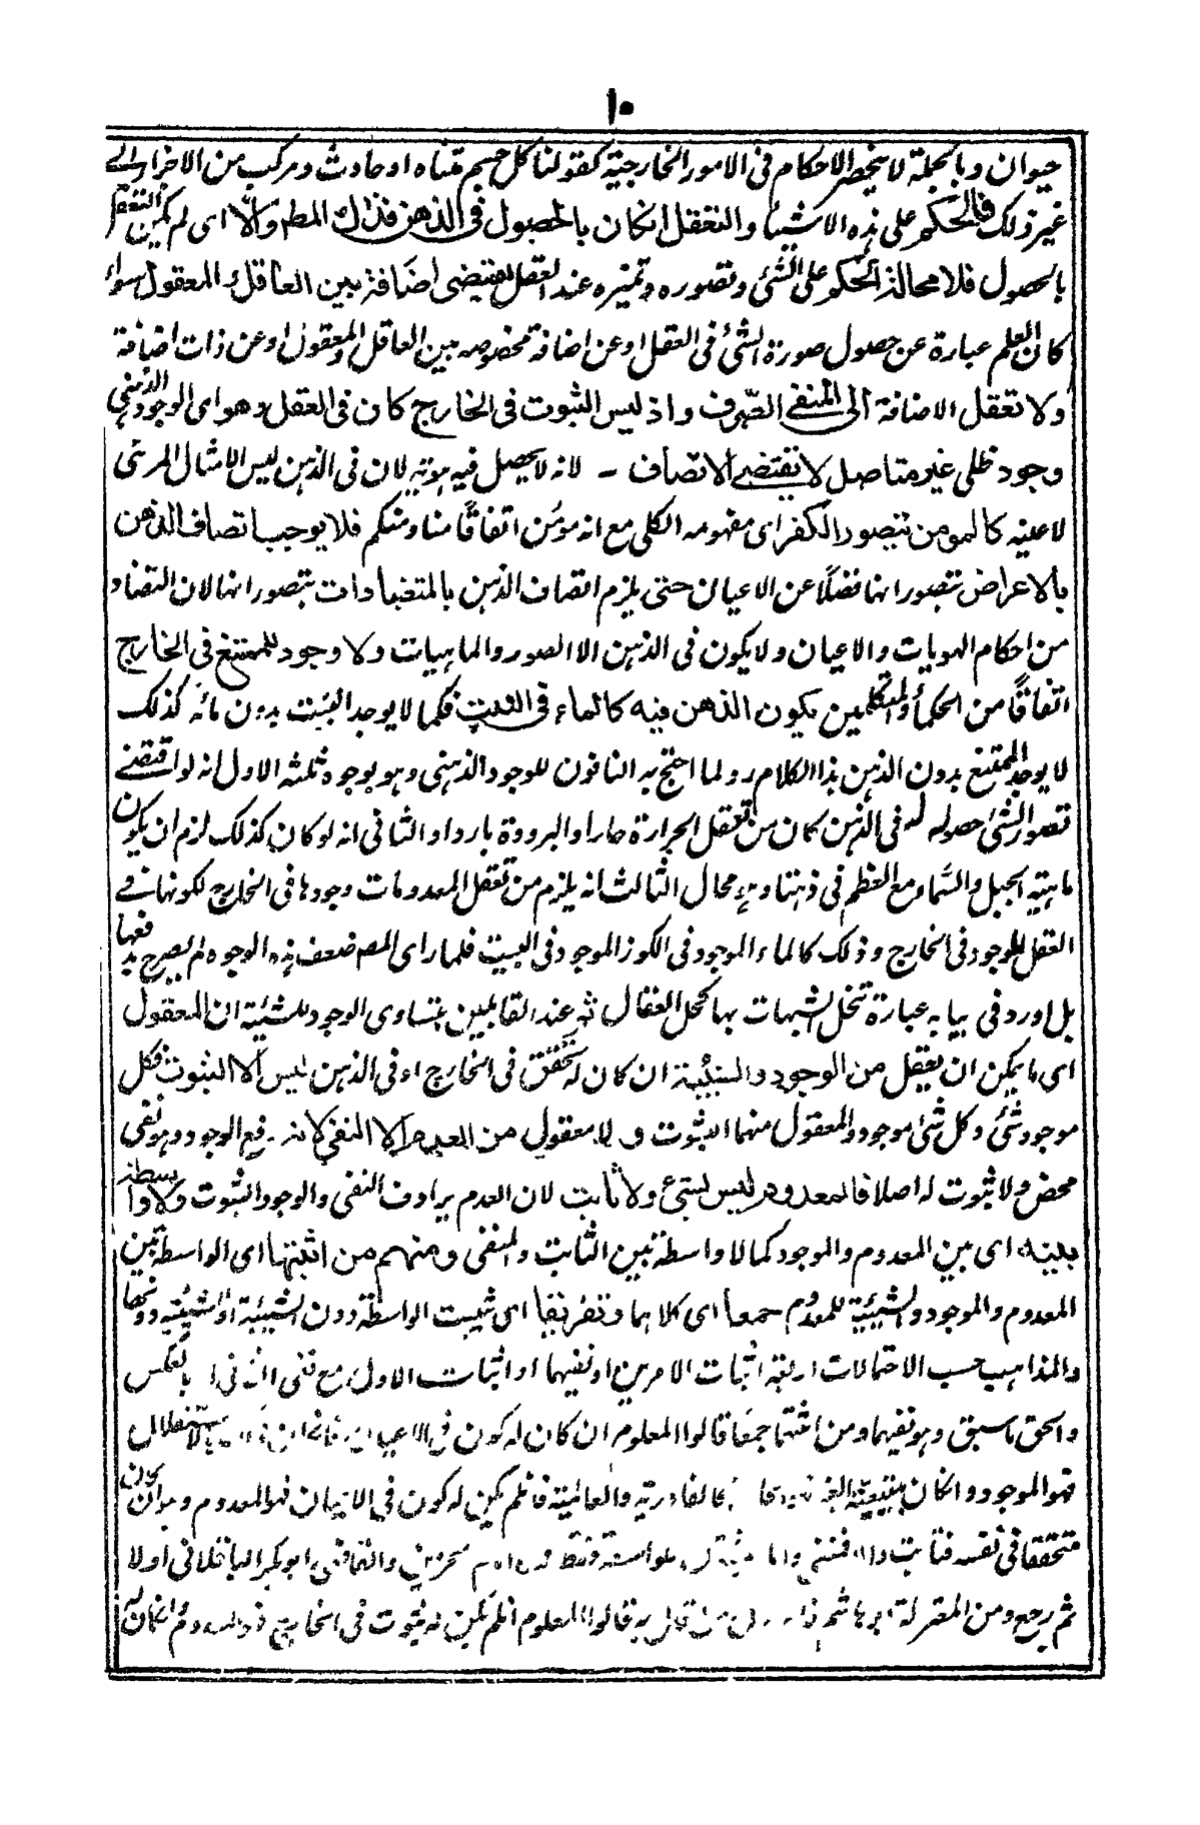 ١٠
حيوان وبالجملة لا ينحصر الاحكام فى الامور الخارجية كقولنا كل جسم متناه او حادث ومركب من الاجزاء الى
غير ذلك فالحكم على هذه الاشياء والتعقل ان كان بالحصول فى الذهن فذاك المط والّا اى لم يكن التعقل
بالحصول فلا محالة الحكم على الشئ وتصوره وتميزه عند العقل يقتضى اضافة بين العاقل والمعقول سواء
كان العلم عبارة عن حصول صورة الشئ فى العقل او عن اضافة مخصوصه بين العاقل والمعقول او عن ذات اضافة
ولا تعقل الاضافة الى المنفى الصّرف واذ ليس الثبوت فى الخارج كان فى العقل وهو اى الوجود الذهنى
وجود ظلى غير متاصل لا يقتضى الاتصاف - لانه لا يحصل فيه هويته لان فى الذهن ليس الا مثال المرئى
لا عينه كالمومن يتصور الكفر اى مفهومه الكلى مع انه مؤمن اتفاقًا منا ومنكم فلا يوجب اتصاف الذهن
بالاعراض بتصوراتها فضلًا عن الاعيان حتى يلزم اتصاف الذهن بالمتضادات بتصوراتها لان التضاد
من احكام الهويات والاعيان ولا يكون فى الذهن الا الصور والماهيات ولا وجود للممتنع فى الخارج
اتفاقًا من الحكماء والمتكلمين يكون الذهن فيه كالماء فى البيت فكما لا يوجد البيت بدون مائه كذلك
لا يوجد الممتنع بدون الذهن هذا الكلام رد لما احتج به النافون للوجود الذهنى وهو بوجوه ثلثة الاول انه لو اقتضى
تصور الشئ حصوله له فى الذهن كان من تعقل الحرارة حارا والبرودة باردا والثانى انه لو كان كذلك لزم ان يكون
ماهية الجبل والسّماء مع العظم فى ذهننا وهو محال الثالث انه يلزم من تعقل المعدومات وجودها فى الخارج لكونها فى
العقل الموجود فى الخارج وذلك كالماء الموجود فى الكوز الموجود فى البيت فلما راى المص ضعف هذه الوجوه لم يصرح بدفعها
بل اورد فى بيانه عبارة تنحل الشبهات بها كحل العقال ثم عند القايلين بتساوى الوجود للشيئية ان المعقول
اى ما يمكن ان يعقل من الوجود والشيئية ان كان له تحقق فى الخارج او فى الذهن ليس الا الثبوت فكل
موجود شئ وكل شئ موجود والمعقول منهما الثبوت ولا معقول من العدم الا النفى لانه رفع الوجود وهو نفى
محض ولا ثبوت له اصلا فالمعدوم ليس بشئ ولا ثابت لان العدم يرادف النفى والوجود الثبوت ولا واسطة
بينه اى بين المعدوم والموجود كما لا واسطة بين الثابت والمنفى ومنهم من اثبتها اى الواسطة بين
المعدوم والموجود والشيئية للمعدوم جمعا اى كلاهما وتفريقا اى يثبت الواسطة دون الشيئية او الشيئية دونها
والمذاهب حسب الاحتمالات اربعة اثبات الامرين او نفيهما او اثبات الاول مع نفى الثانى او بالعكس
والحق ما سبق وهو نفيهما ومن اثبتهما جمعًا قالوا المعلوم ان كان له كون فى الاعيان فان كان بالاستقلال
فهو الموجود وان كان بتبعية الغير كالقادرية والعالمية فان لم يكن له كون فى الاعيان فهو المعدوم وهو ان كان
متحققا فى نفسه فثابت والا فمنفى واما واسطة فقط والقاضى ابو بكر الباقلانى اولا
ثم رجع ومن المعتزلة ابو هاشم قالوا المعلوم ان لم يكن له ثبوت فى الخارج فهو المعدوم وان كان له